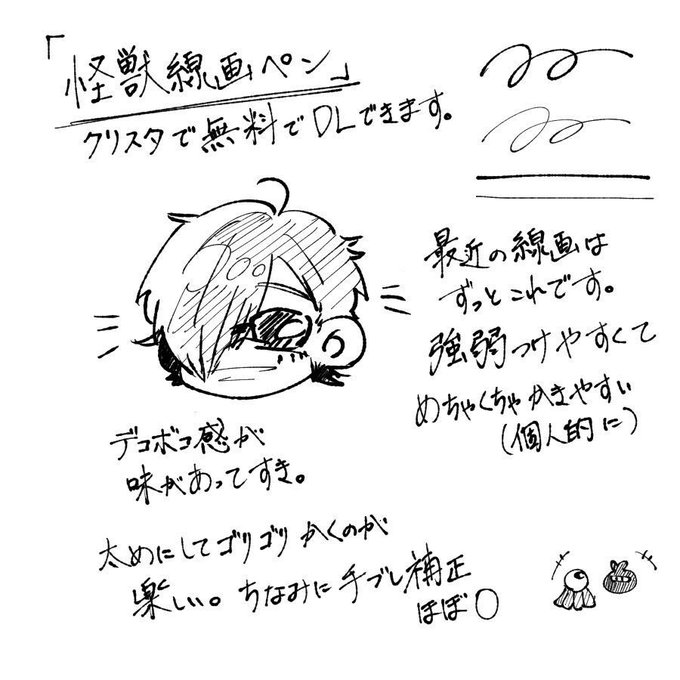 「怪獣線画ペン」
クリスタで無料でDLできます。
最近の線画は
ずっとこれです。
強弱つけやすくて
めちゃくちゃかきやすい
(個人的に)
デコボコ感が
味があってすき。
太めにしてゴリゴリかくのが
楽しい。ちなみに手ブレ補正
ほぼ0